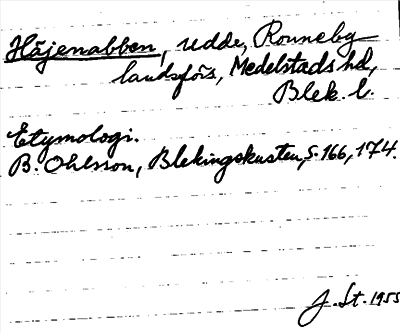 Häjenabben, udde, Ronneby
landsförs, Medelstads hd,
Blek. l.
Etymologi.
B. Ohlsson, Blekingskusten, s. 166, 174.
J. St. 1955